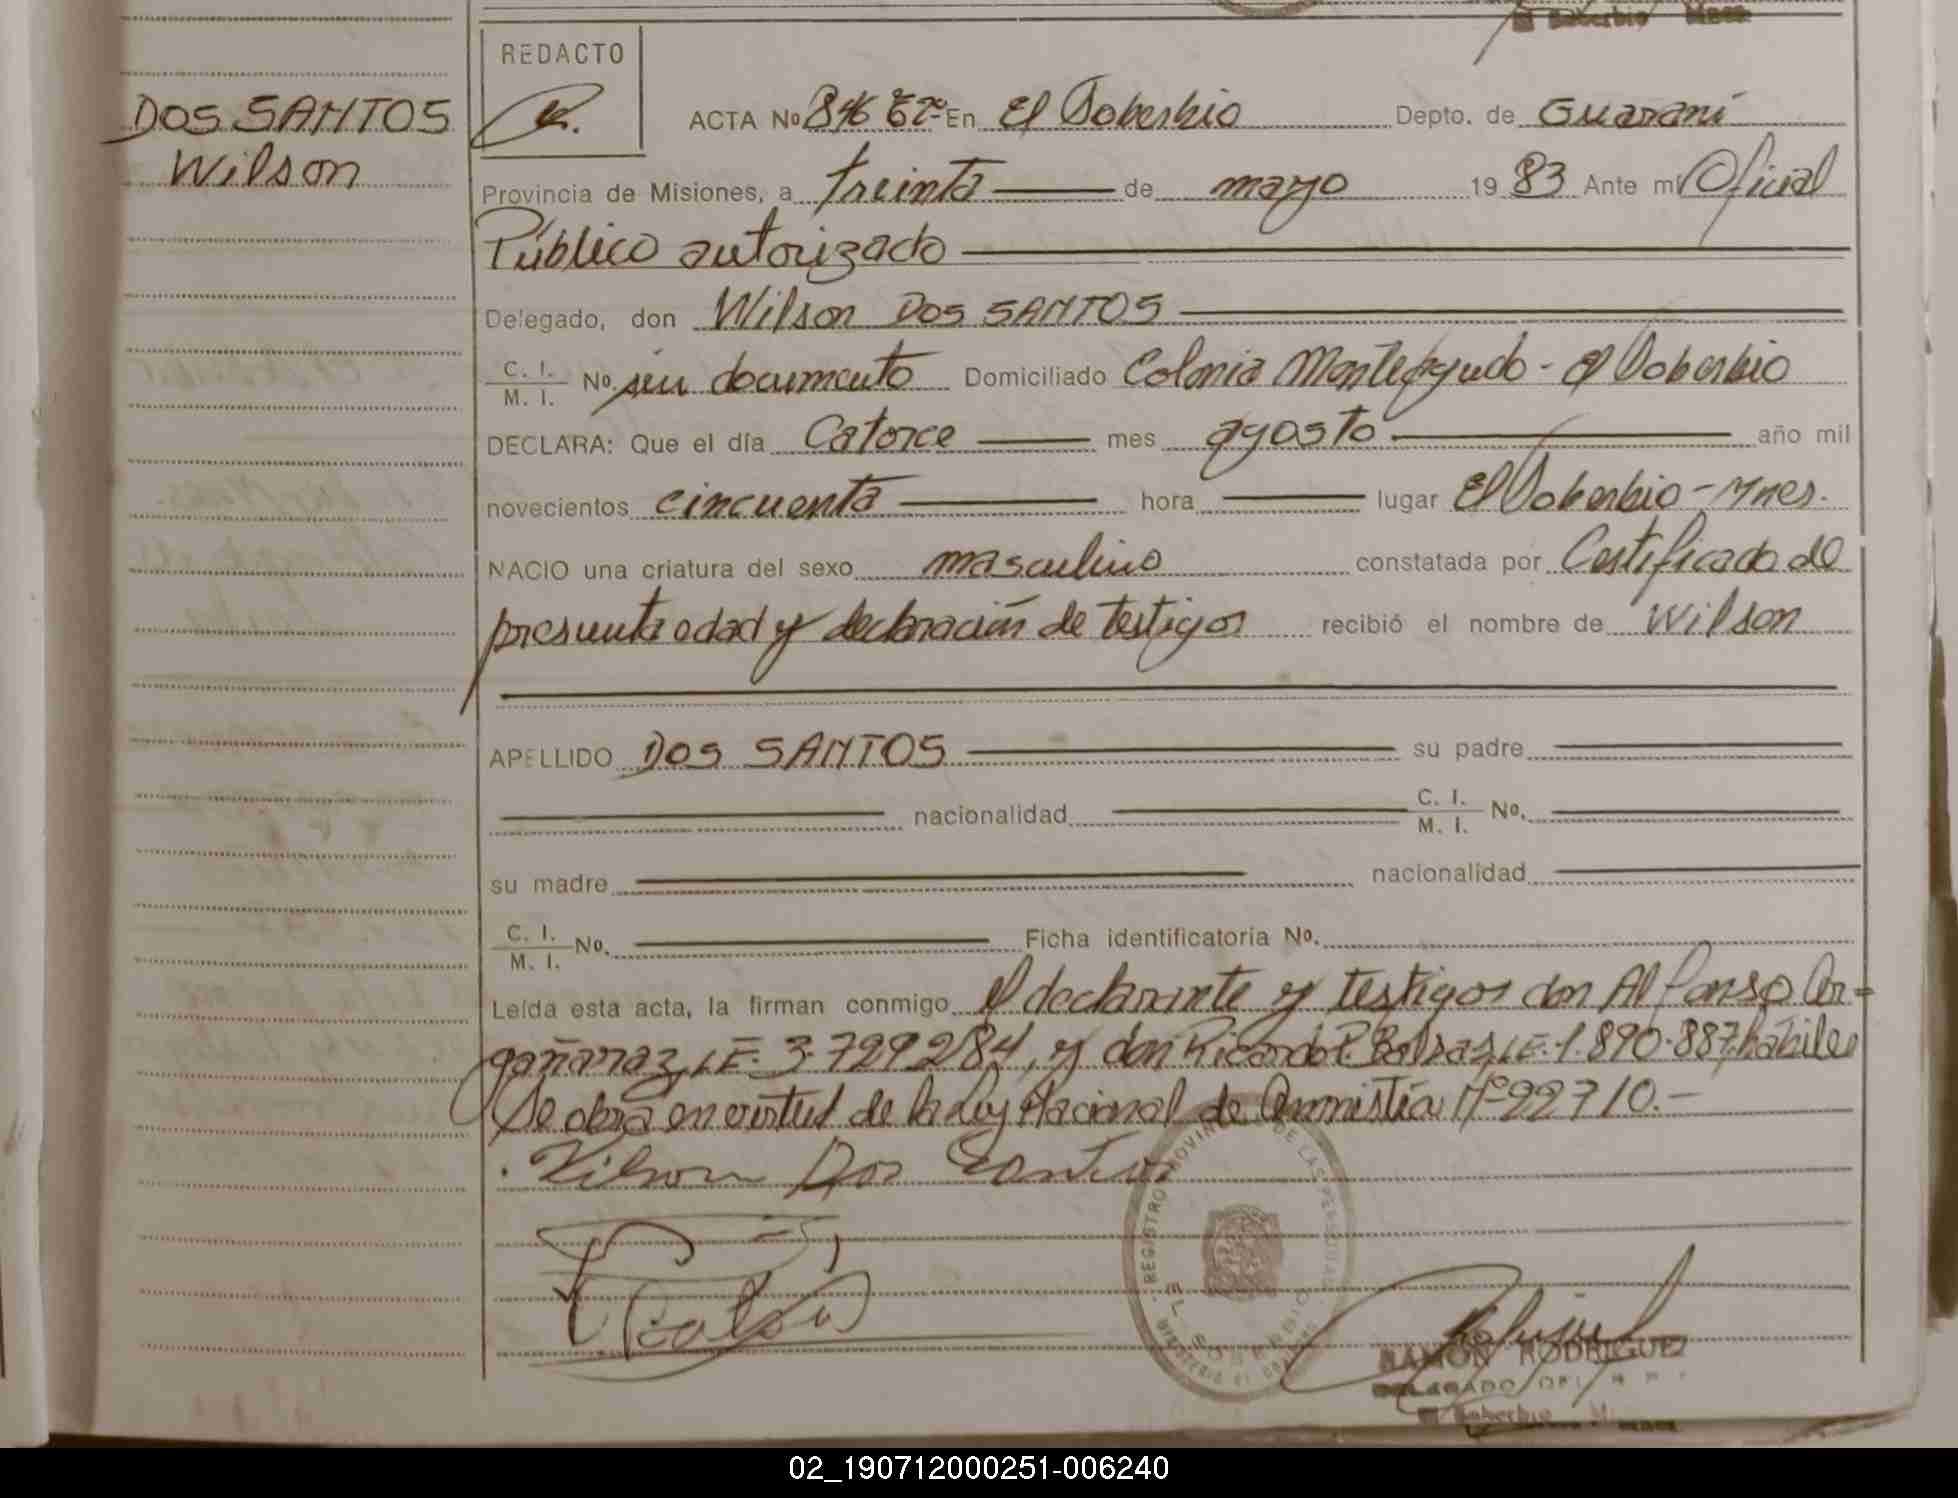 El Soberbio Mnes.
REDACTO
DOS SANTOS
Wilson
ACTA Nº 846 En El Soberbio Depto. de Guaraní
Provincia de Misiones, a treinta de mayo 1983 Ante mí Oficial
Público autorizado
Delegado, don Wilson DOS SANTOS
C. I. / M. I. No. sin documento Domiciliado Colonia Monteagudo - El Soberbio
DECLARA: Que el día Catorce mes agosto año mil
novecientos cincuenta hora lugar El Soberbio - Mnes.
NACIO una criatura del sexo masculino constatada por Certificado de
presunta edad y declaración de testigos recibió el nombre de Wilson
APELLIDO DOS SANTOS su padre
nacionalidad C. I. / M. I. No.
su madre nacionalidad
C. I. / M. I. No. Ficha identificatoria No.
Leída esta acta, la firman conmigo el declarante y testigos don Alfonso Ar=
gañaraz, L.E. 3.729284, y don Ricardo R. Balsas, L.E. 1.890.887, hábiles
Se obra en virtud de la Ley Nacional de Amnistía Nº 22710.-
Wilson Dos Santos
REGISTRO PROVINCIAL DE LAS PERSONAS
EL SOBERBIO
RAMON RODRIGUEZ
DELEGADO DEL R. P.
El Soberbio
02_190712000251-006240